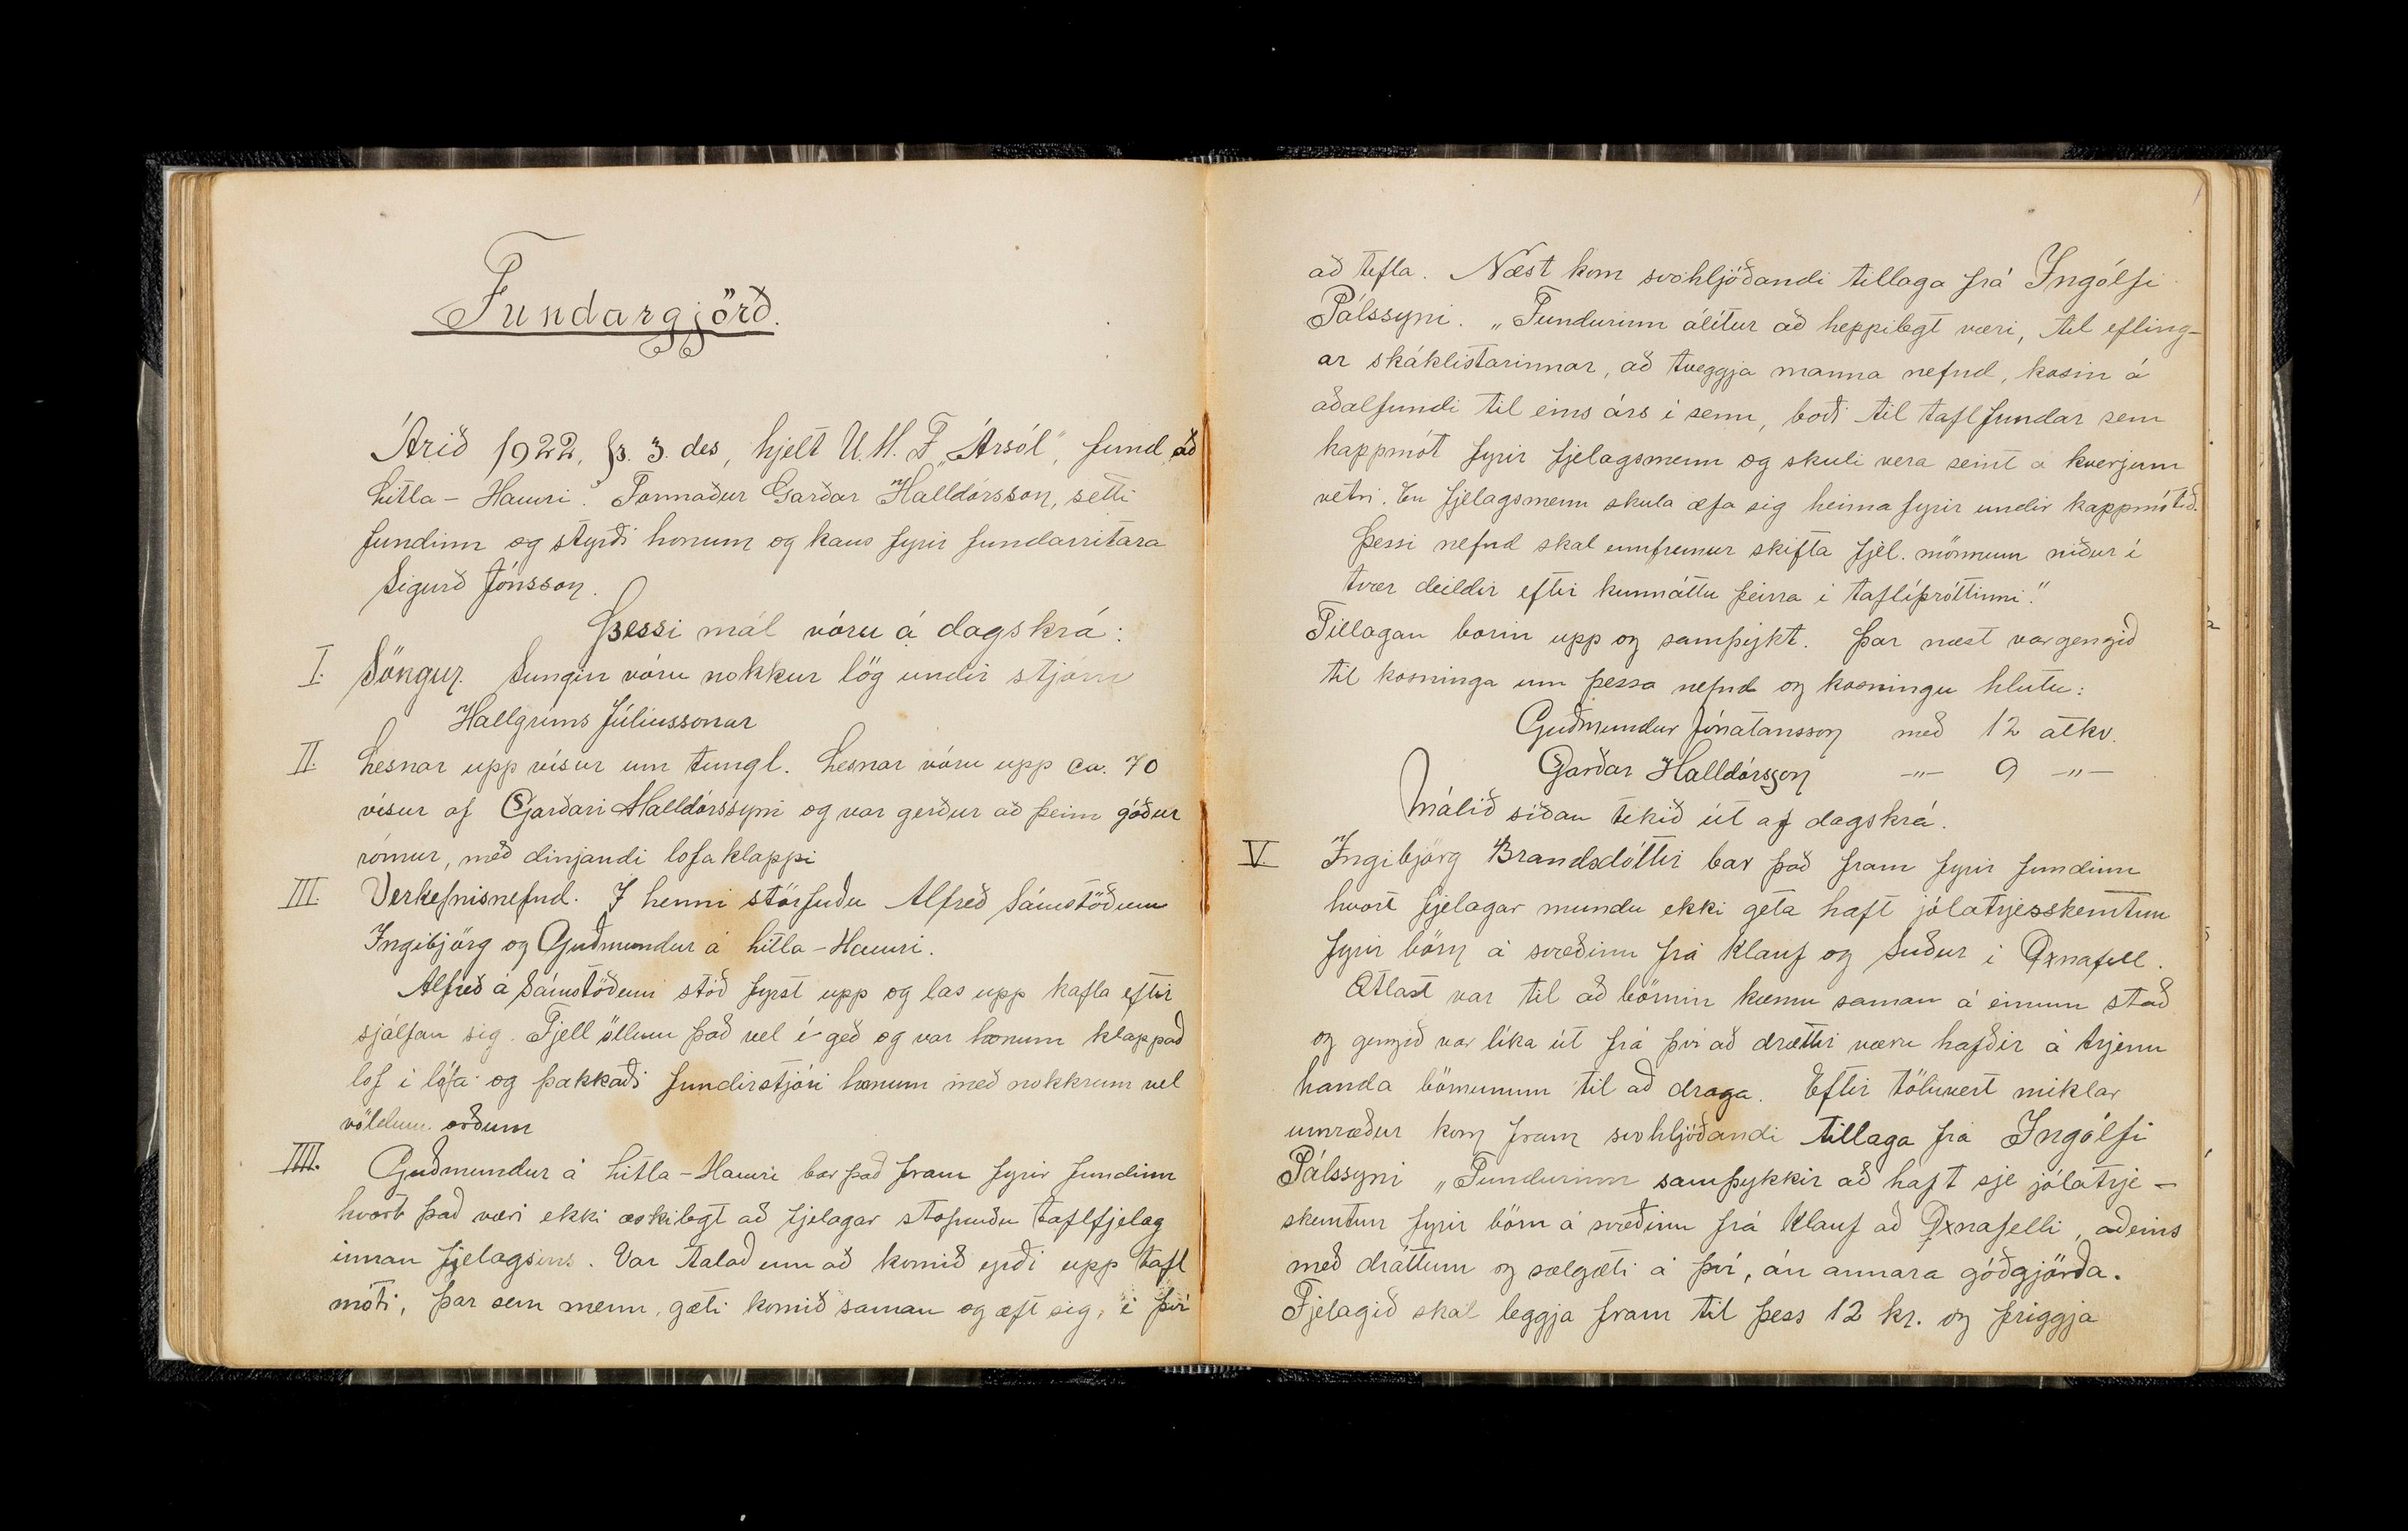 Fundargjörð.
Árið 1922, þ. 3. des, hjelt U.M.F. „Ársól", fund að
Litla-Hamri. Formaður Garðar Halldórsson, setti
fundinn og styrði honum og kaus fyrir fundarritara
Sigurð Jónsson.
Þessi mál vóru á dagskrá:
I. Söngur. Sungin vóru nokkur lög undir stjórn
Hallgríms Júlíussonar
II. Lesnar upp vísur um tungl. Lesnar vóru upp ca. 70
vísur af Garðari Halldórssyni og var gerður að þeim góður
rómur, með dinjandi lofaklappi
III. Verkefnisnefnd. I henni störfuðu Alfreð Sámstöðum
Ingibjörg og Guðmundur á Litla-Hamri.
Alfreð á Sámstöðum stóð fyrst upp og las upp kafla eftir
sjálfan sig. Fjell öllum það vel í geð og var honum klappað
lof í lófa og þakkaði fundirstjóri honum með nokkrum vel
völdum orðum
IIII. Guðmundur á Litla-Hamri bar það fram fyrir fundinn
hvort það væri ekki æskilegt að fjelagar stofnuðu taflfjelag
innan fjelagsins. Var talað um að komið yrði upp tafl
móti, þar sem menn, gæti komið saman og æft sig, í því
að tefla. Næst kom svohljóðandi tillaga frá Ingólfi
Pálssyni. „Fundurinn álítur að heppilegt væri, til efling-
ar skáklistarinnar, að tveggja manna nefnd, kosin á
aðalfundi til eins árs í senn, boði til taflfundar sem
kappmót fyrir fjelagsmenn og skuli vera seint á hverjum
vetri. En fjelagsmenn skula æfa sig heima fyrir undir kappmótið.
Þessi nefnd skal ennfremur skifta fjel. mönnum niður í
tvær deildir eftir kunnáttu þeirra í taflíþróttinni."
Tillagan borin upp og samþykt. Þar næst var gengið
til kosninga um þessa nefnd og kosningu hlutu:
Guðmundur Jónatansson með 12 atkv.
Garðar Halldórsson -"- 9 -"-
Málið síðan tekið út af dagskrá.
V. Ingibjörg Brandsdóttir bar það fram fyrir fundinn
hvort fjelagar mundu ekki geta haft jólatrjesskemtun
fyrir börn á svæðinu frá Klauf og Suður í Öxnafell.
Ætlast var til að börnin kæmu saman á einum stað
og gengið var líka út frá því að drættir væru hafðir á trjenu
handa börnunum til að draga. Eftir töluvert miklar
umræður kom fram svohljóðandi tillaga frá Ingólfi
Pálssyni „Fundurinn samþykkir að haft sje jólatrje-
skemtun fyrir börn á svæðinu frá Klauf að Öxnafelli, aðeins
með dráttum og sælgæti á því, án annara góðgjörða.
Fjelagið skal leggja fram til þess 12 kr. og þriggja